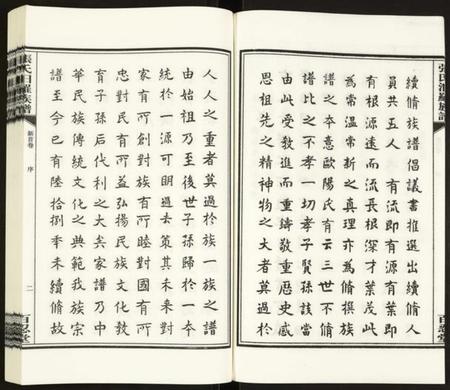 續脩族譜倡議書推選出續脩人
員共五人　有流即有源有葉即
有根源遠而流長根深才葉茂此
為常温常新之真理亦為脩撰族
譜之本意歐陽氏有云三世不脩
譜比之不孝一切孝子賢孫該當
由此受教進而重鑄敬重歷史感
恩祖先之精神物之大者莫過於
人人之重者莫過於族一族之譜
由始祖乃至後世子孫歸於一本
統於一源可明過去策其未來對
家有所創對族百所睦對國有所
忠對民有所益弘揚民族文化教
育子孫后代利之大矣家譜乃中
華民族傳統文化之典範我族宗
譜至今已有陸拾捌年未續脩故
新首卷　序
二
百忍堂